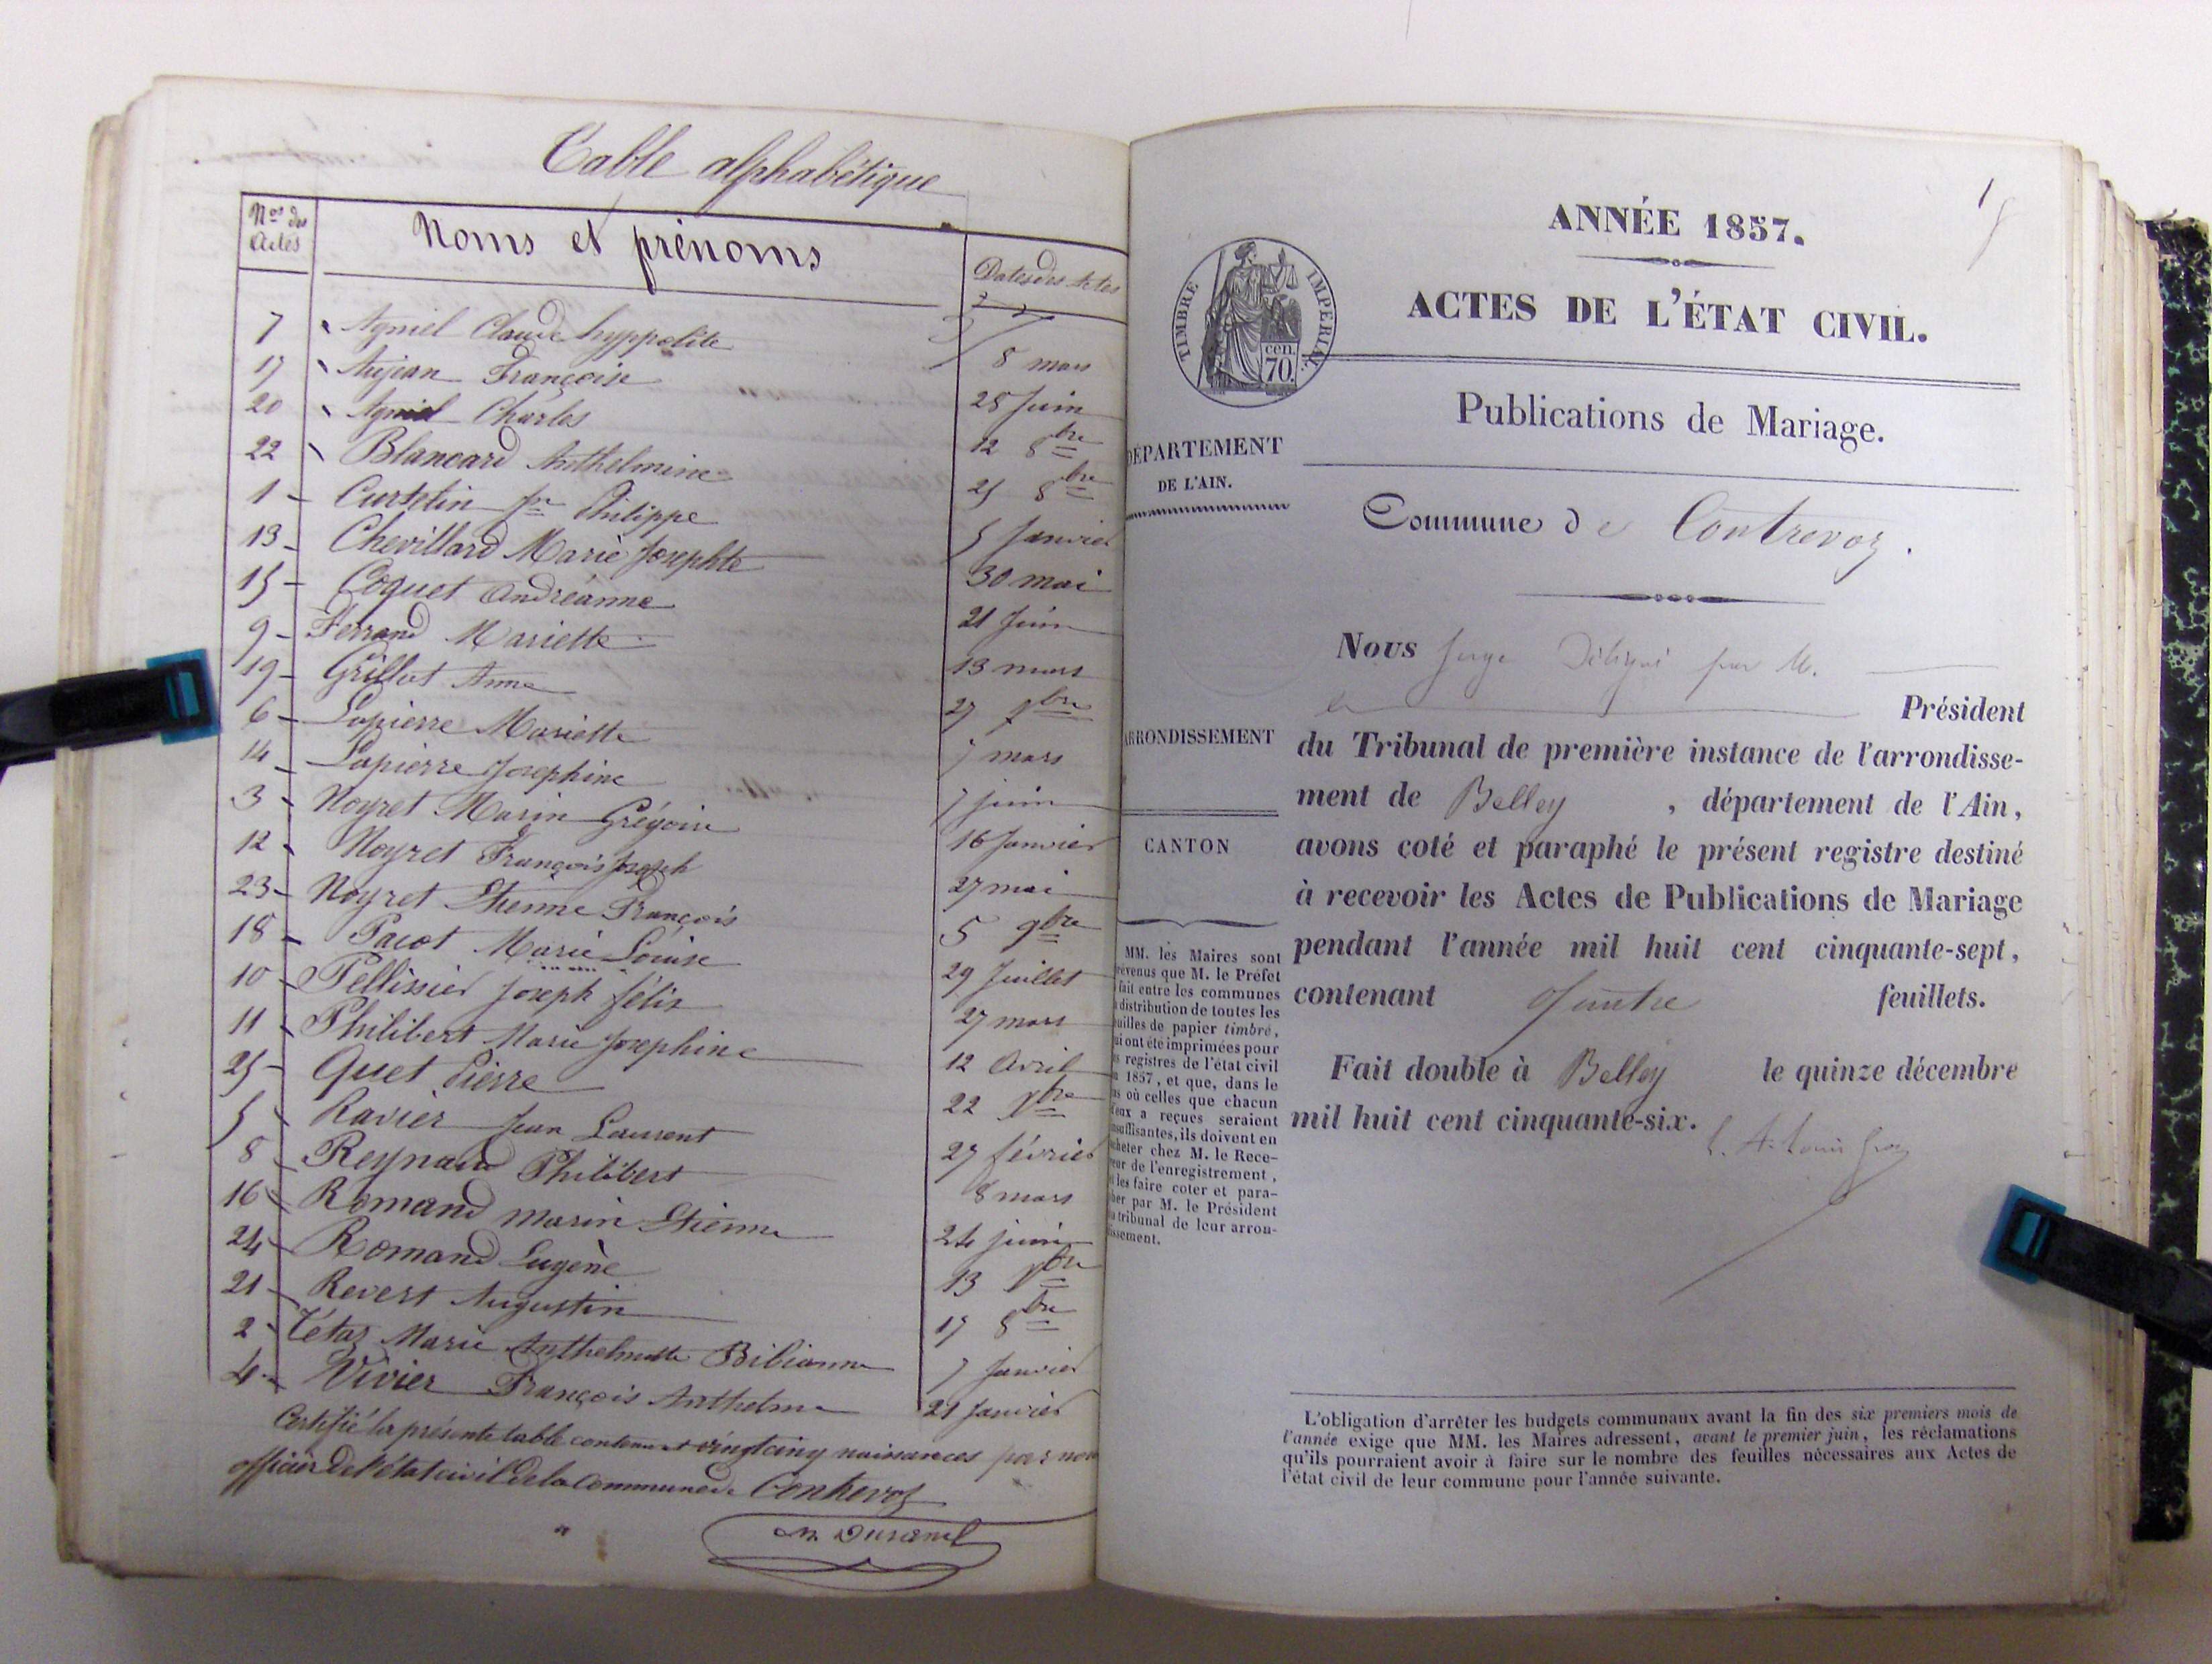 Table alphabétique
Nos des Actes Noms et prénoms Dates des Actes
7 Agniel Claude hyppolite 8 mars
17 Aujean Françoise 28 Juin
20 Agniel Charles 12 8bre
22 Blancard Anthelmine 25 8bre
1 Curtelin jh Philippe 5 Janvier
13 Chevillard Marie Josephte 30 mai
15 Coquet Andréanne 21 Juin
9 Ferrand Mariette 13 mars
19 Grillot Anne 27 7bre
6 Lapierre Mariette 7 mars
14 Lapierre Josephine 7 juin
3 Noyret Marin Grégoire 16 Janvier
12 Noyret François Joseph 27 mai
23 Noyret Etienne François 5 9bre
18 Pacot Marie Louise 29 Juillet
10 Pellissier Joseph félix 27 mars
11 Philibert Marie Josephine 12 Avril
25 Quet Pierre 22 Xbre
5 Ravier Jean Laurent 27 février
8 Reynaud Philibert 8 mars
16 Romand Marin Etienne 24 juin
24 Romand Eugène 13 Xbre
21 Revert Augustin 17 8bre
2 Tétaz Marie Anthelmette Bibianne 7 Janvier
4 Vivier François Anthelme 21 Janvier
Certifié la présente table contenant vingt cinq naissances par nous
officier de l'état civil de la commune de Contrevoz
Durand
1
ANNÉE 1857.
ACTES DE L'ÉTAT CIVIL.
TIMBRE IMPÉRIAL
cen. 70.
Publications de Mariage.
DÉPARTEMENT
DE L'AIN.
Commune de Contrevoz.
Nous Juge Délégué par M.
le Président
ARRONDISSEMENT
du Tribunal de première instance de l'arrondisse-
ment de Belley, département de l'Ain,
CANTON
avons coté et paraphé le présent registre destiné
à recevoir les Actes de Publications de Mariage
pendant l'année mil huit cent cinquante-sept,
contenant quatre feuillets.
Fait double à Belley le quinze décembre
mil huit cent cinquante-six.
MM. les Maires sont
prévenus que M. le Préfet
fait entre les communes
distribution de toutes les
feuilles de papier timbré,
qui ont été imprimées pour
registres de l'état civil
1857, et que, dans le
cas où celles que chacun
d'eux a reçues seraient
insuffisantes, ils doivent en
acheter chez M. le Rece-
veur de l'enregistrement,
les faire coter et para-
pher par M. le Président
tribunal de leur arron-
dissement.
L'obligation d'arrêter les budgets communaux avant la fin des six premiers mois de
l'année exige que MM. les Maires adressent, avant le premier juin, les réclamations
qu'ils pourraient avoir à faire sur le nombre des feuilles nécessaires aux Actes de
l'état civil de leur commune pour l'année suivante.